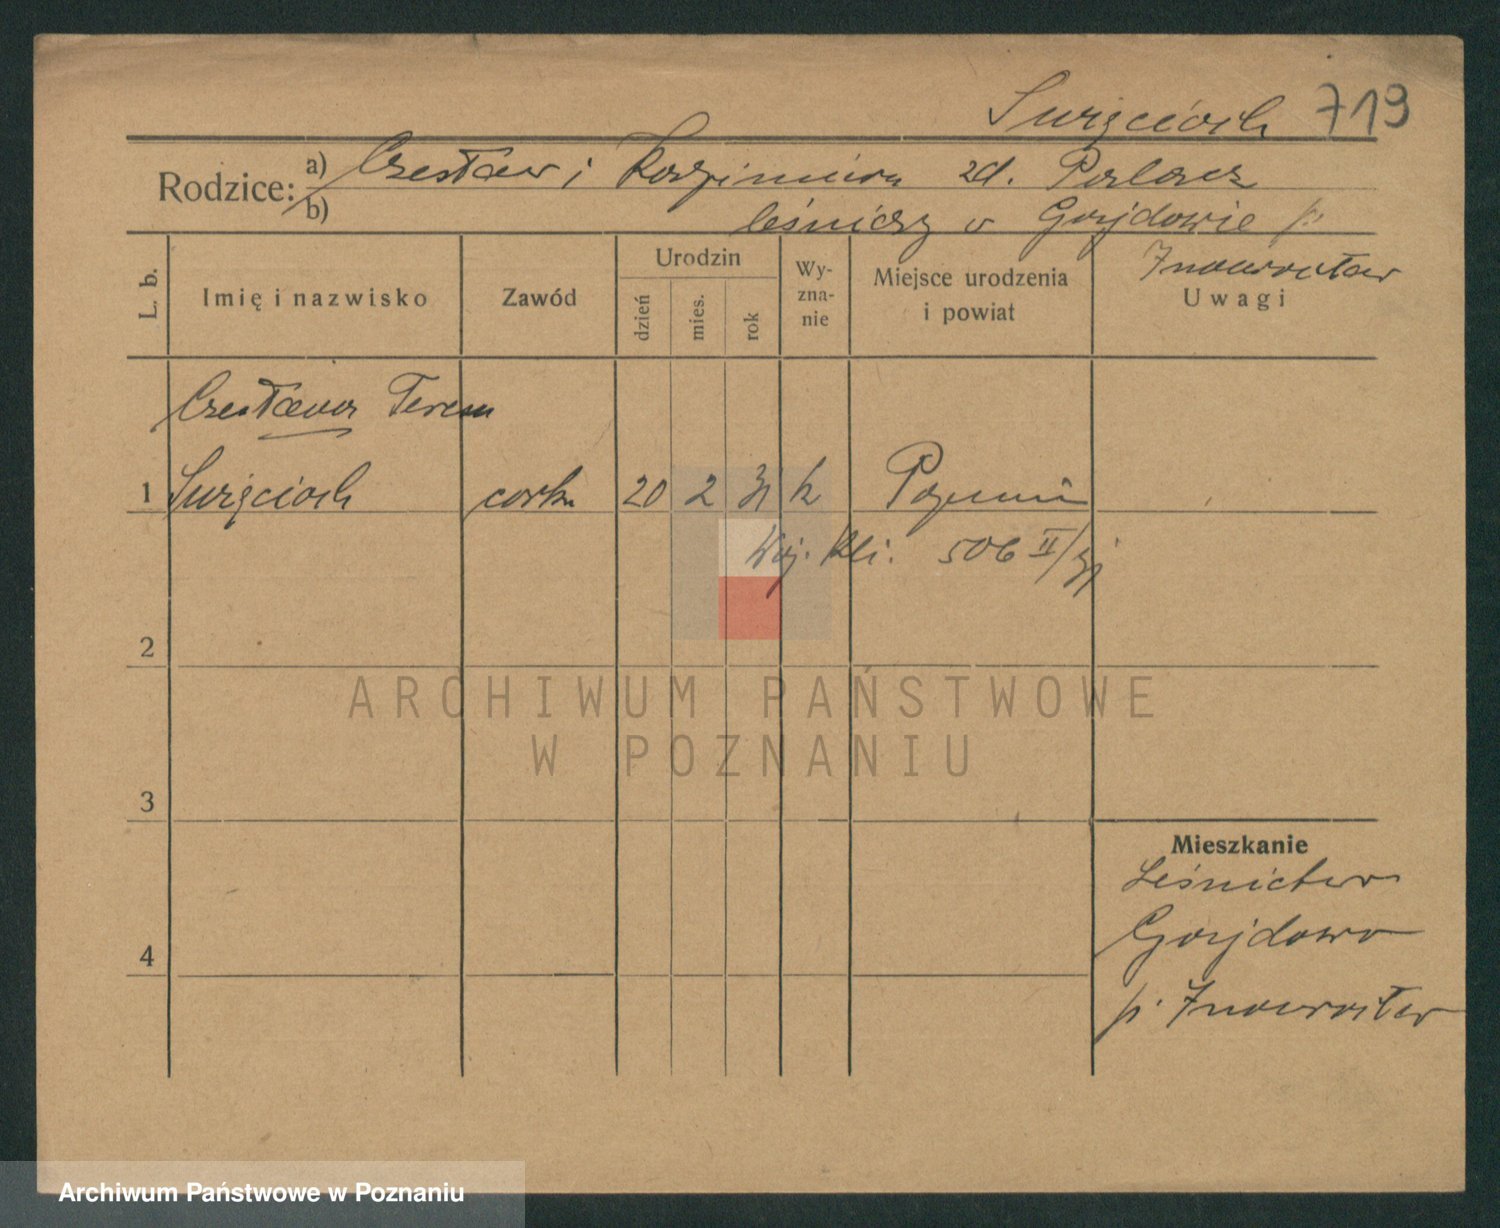 Święcioch 719
Rodzice: a) Czesław i Kazimiera zd. Palacz
b) leśniczy w Gajdowie p.
Inowrocław
L. b.
Imię i nazwisko
Zawód
Urodzin
dzień
mies.
rok
Wy-
zna-
nie
Miejsce urodzenia
i powiat
Uwagi
Czesława Teresa
1 Święcioch córka 20 2 31 k Poznań
Woj. Kli. 506 II/31
2
3
4
Mieszkanie
Leśnictwo
Gajdowo
p. Inowrocław
ARCHIWUM PAŃSTWOWE
W POZNANIU
Archiwum Państwowe w Poznaniu